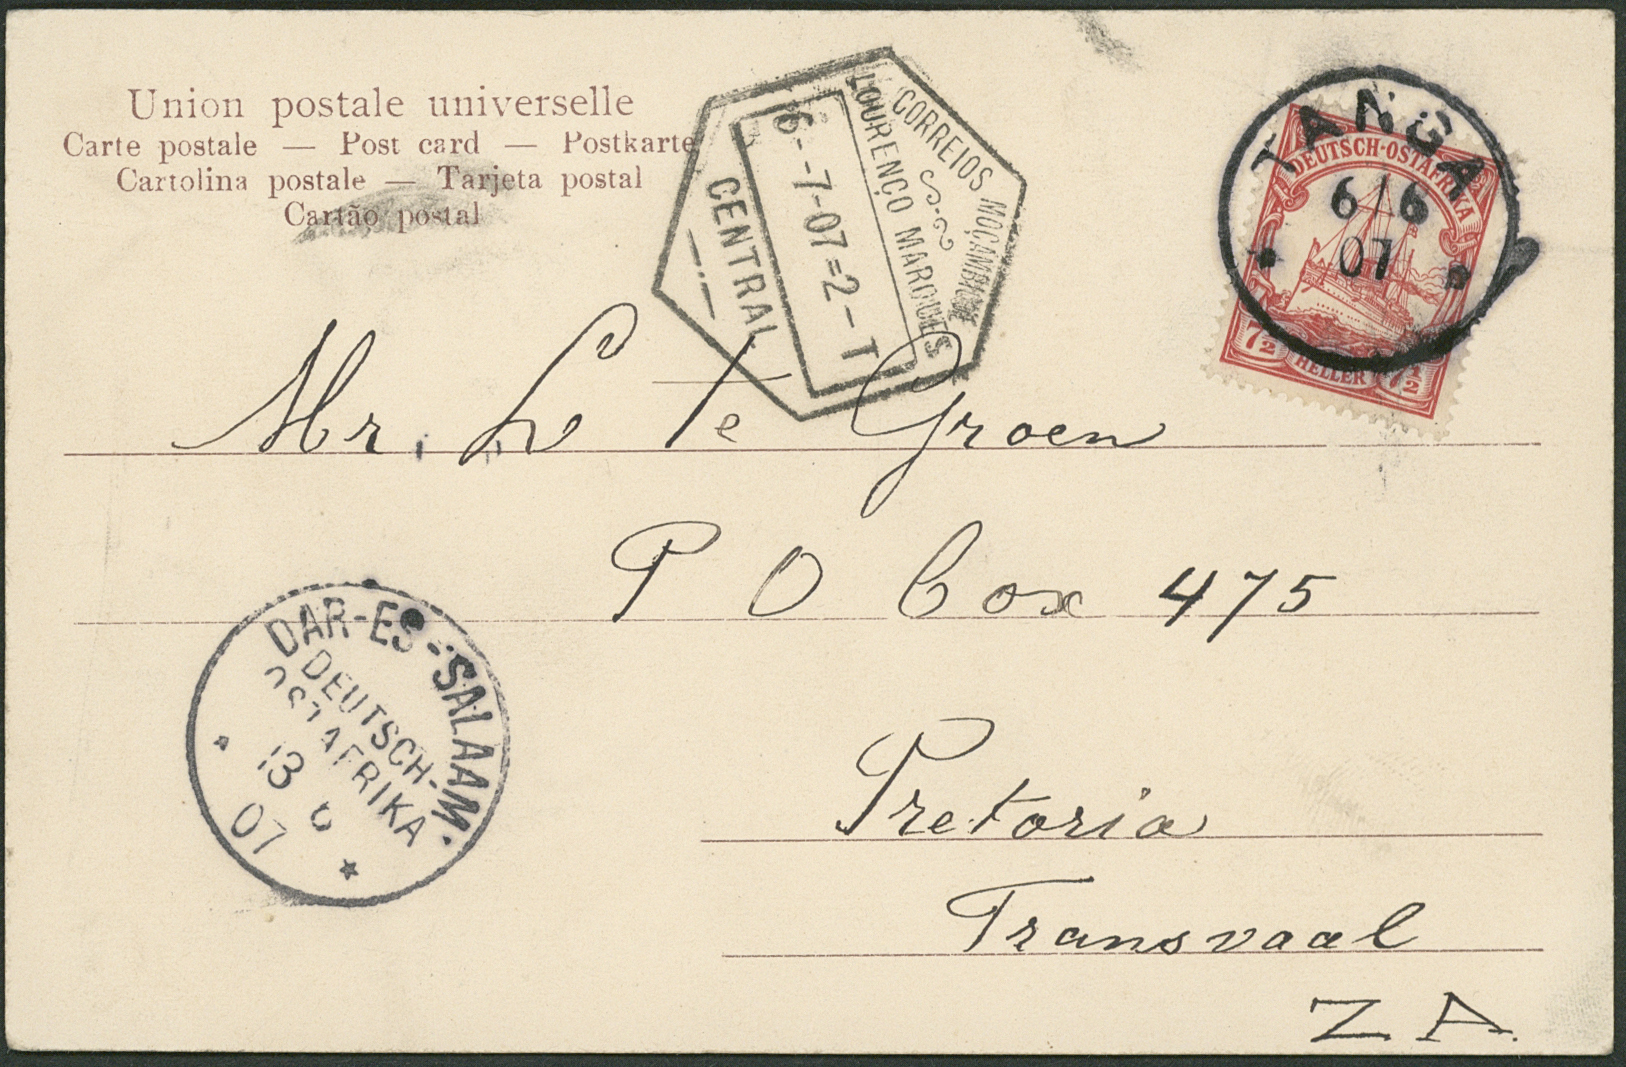 Union postale universelle
Carte postale — Post card — Postkarte
Cartolina postale — Tarjeta postal
Cartão postal
CORREIOS MOÇAMBIQUE
LOURENÇO MARQUES
6-7-07=2-T
CENTRAL
TANGA
6/6
07
DEUTSCH-OSTAFRIKA
7½ HELLER 7½
Mr. L te Groen
P O Box 475
Pretoria
Transvaal
Z A
DAR-ES-SALAAM
DEUTSCH-
OSTAFRIKA
13 6
07